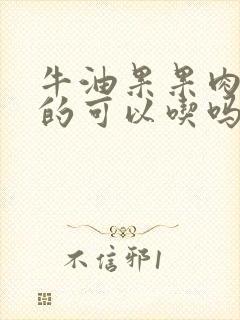 牛油果果肉
的可以喫吗
不信邪1